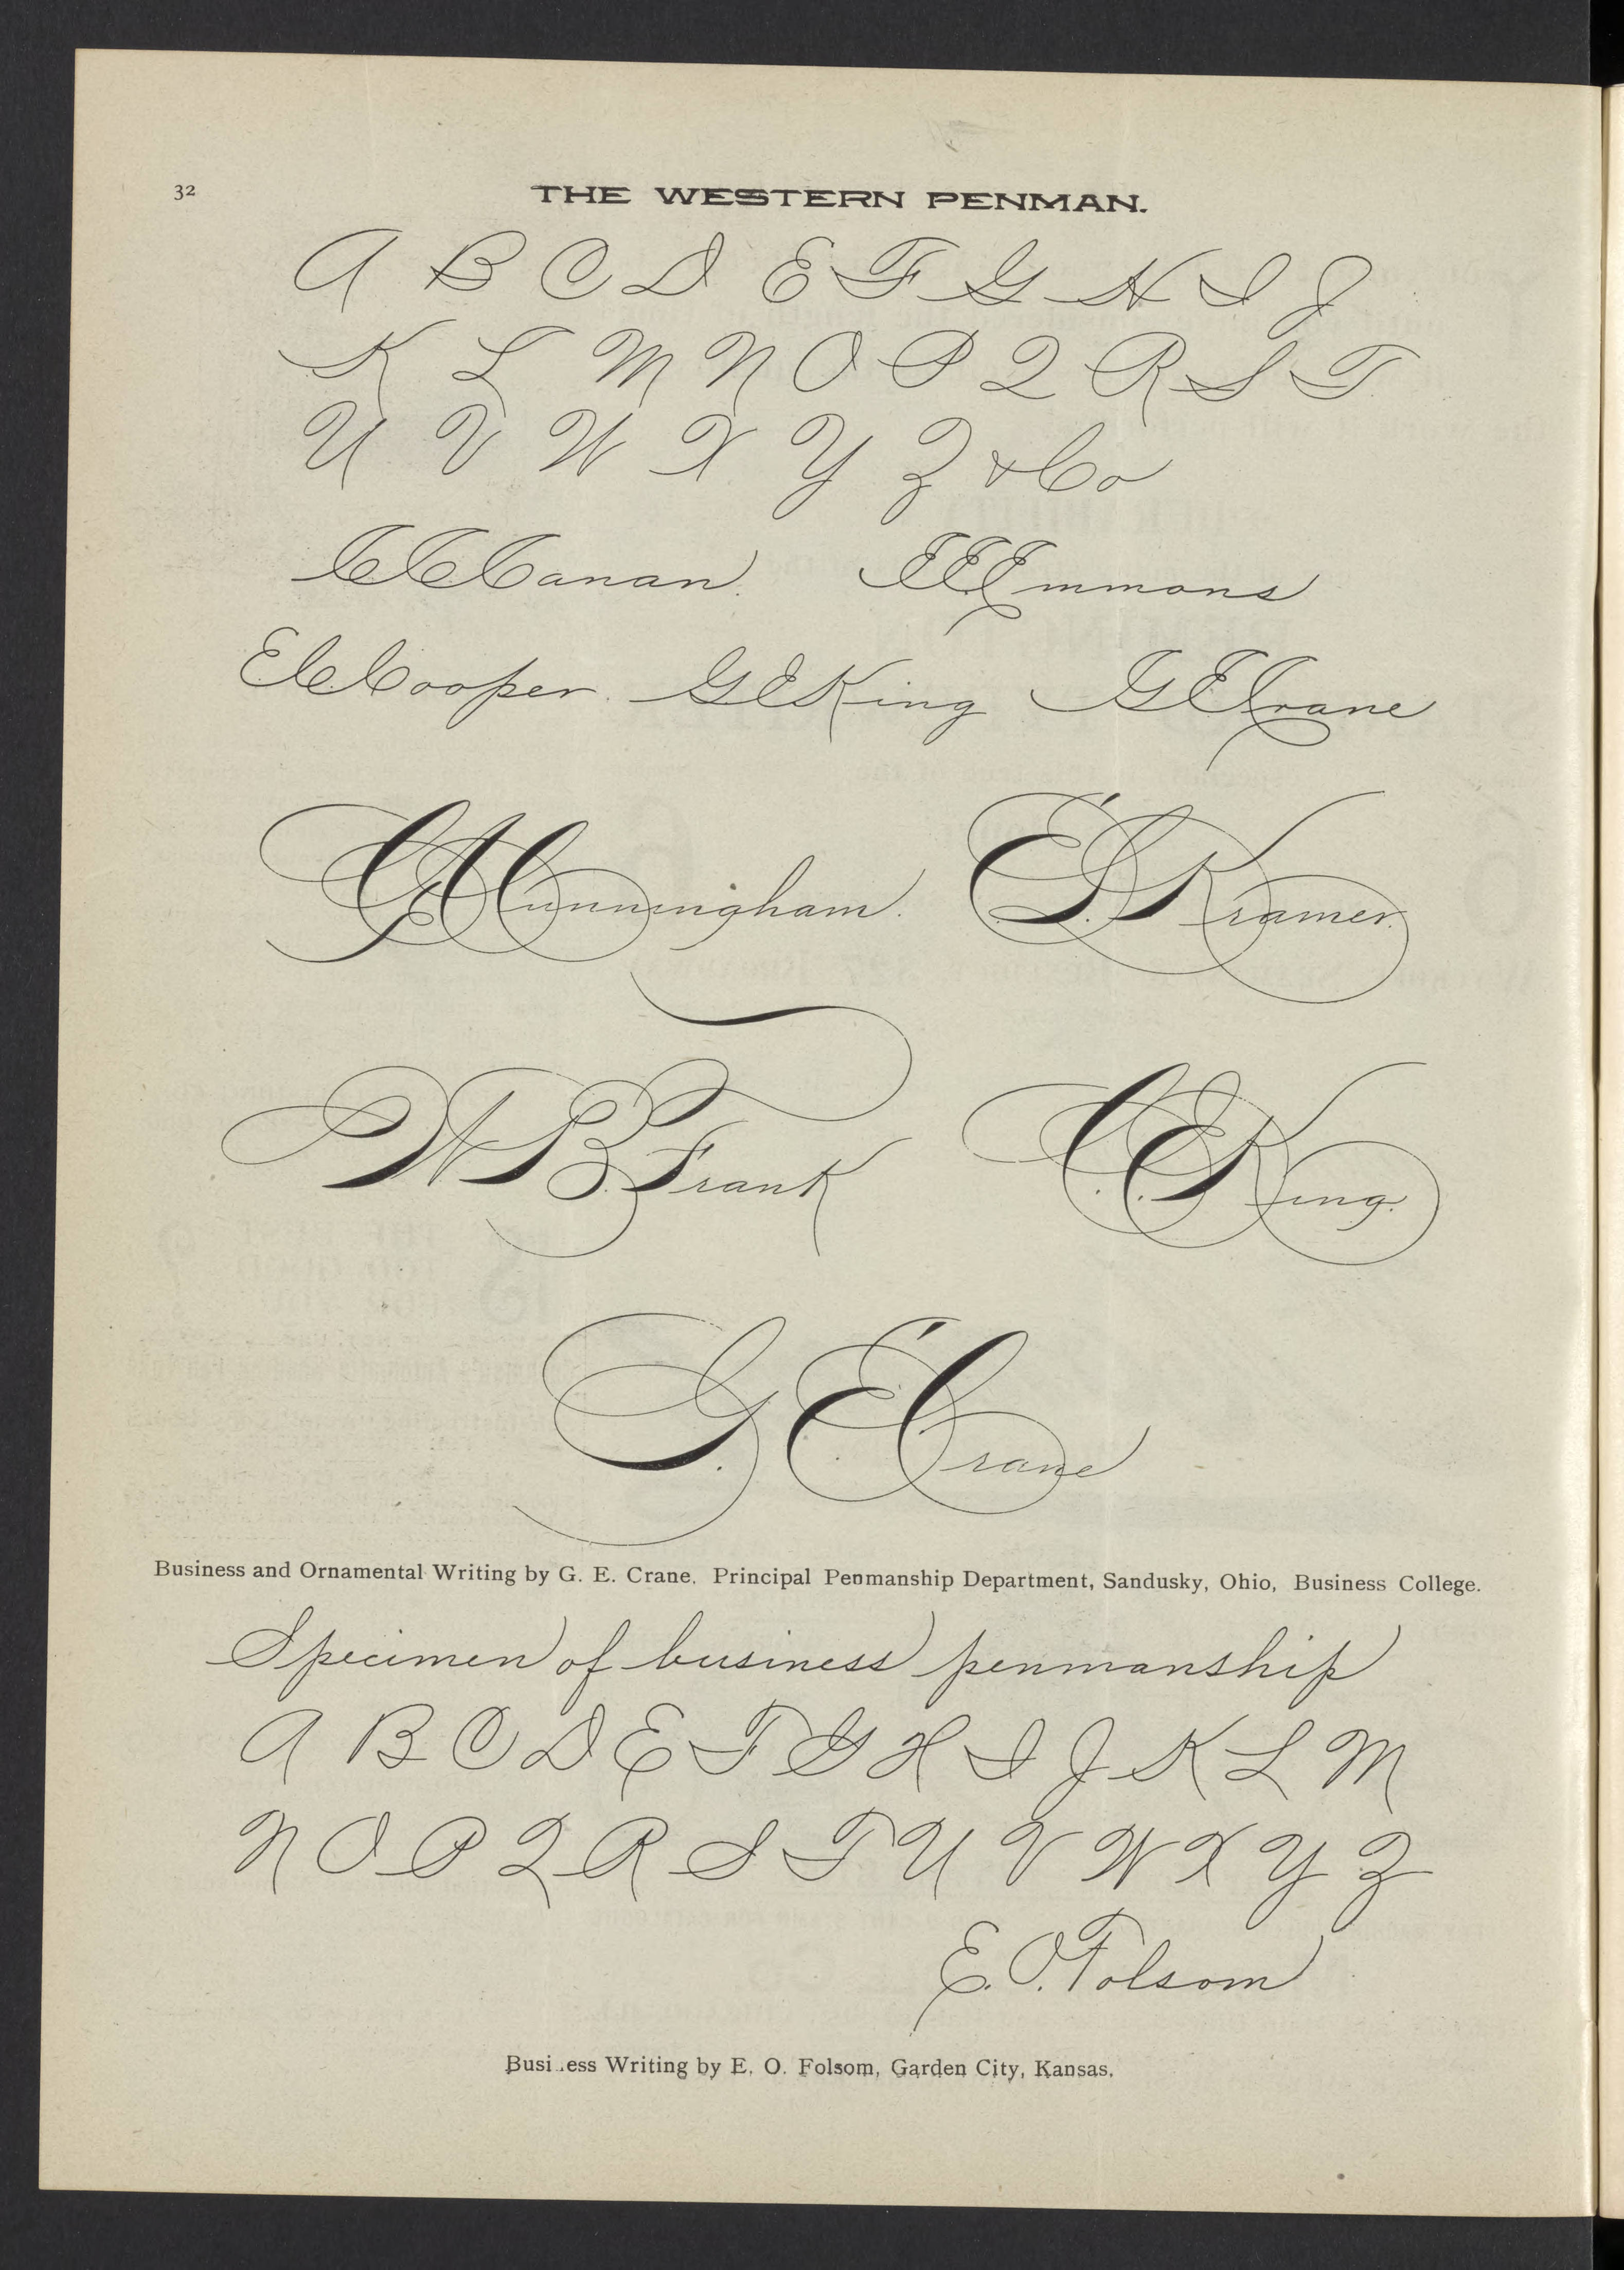 32
THE WESTERN PENMAN.
A B C D E F G H I J
K L M N O P Q R S T
U V W X Y Z & Co
C C Canan. E E Emmons
E C Cooper. G E King G E Crane
G A Cunningham. E. S. Kramer.
W B. Frank C. E. King.
G. E. Crane
Business and Ornamental Writing by G. E. Crane. Principal Penmanship Department, Sandusky, Ohio, Business College.
Specimen of business penmanship
A B C D E F G H I J K L M
N O P Q R S T U V W X Y Z
E. O. Folsom
Busi..ess Writing by E. O. Folsom, Garden City, Kansas.